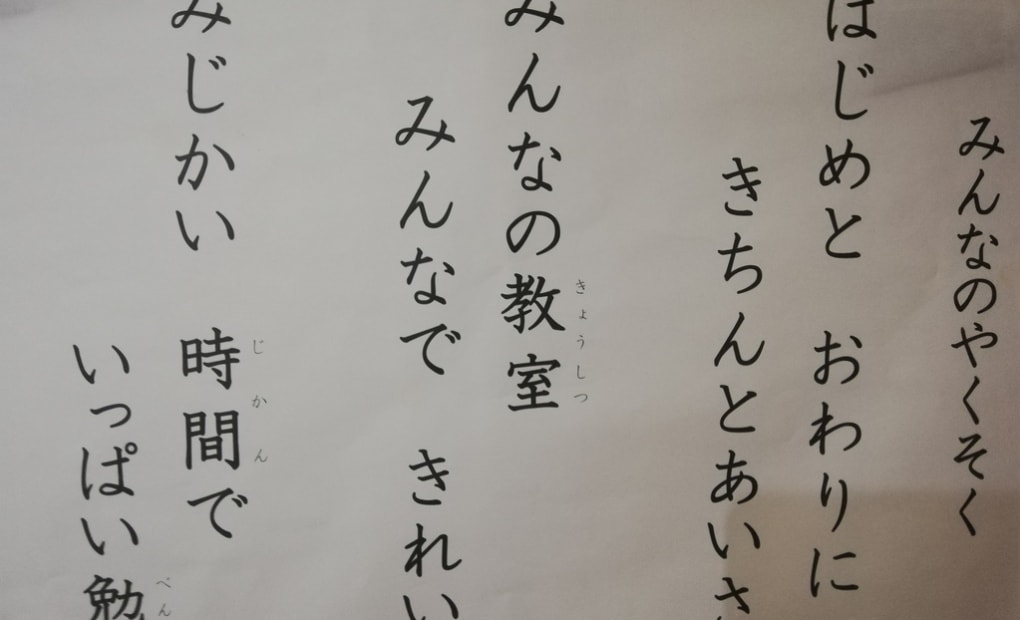 みんなのやくそく
はじめと おわりに
きちんとあいさ
みんなの教室
きょうしつ
みんなで きれい
みじかい 時間で
じかん
いっぱい勉
べん